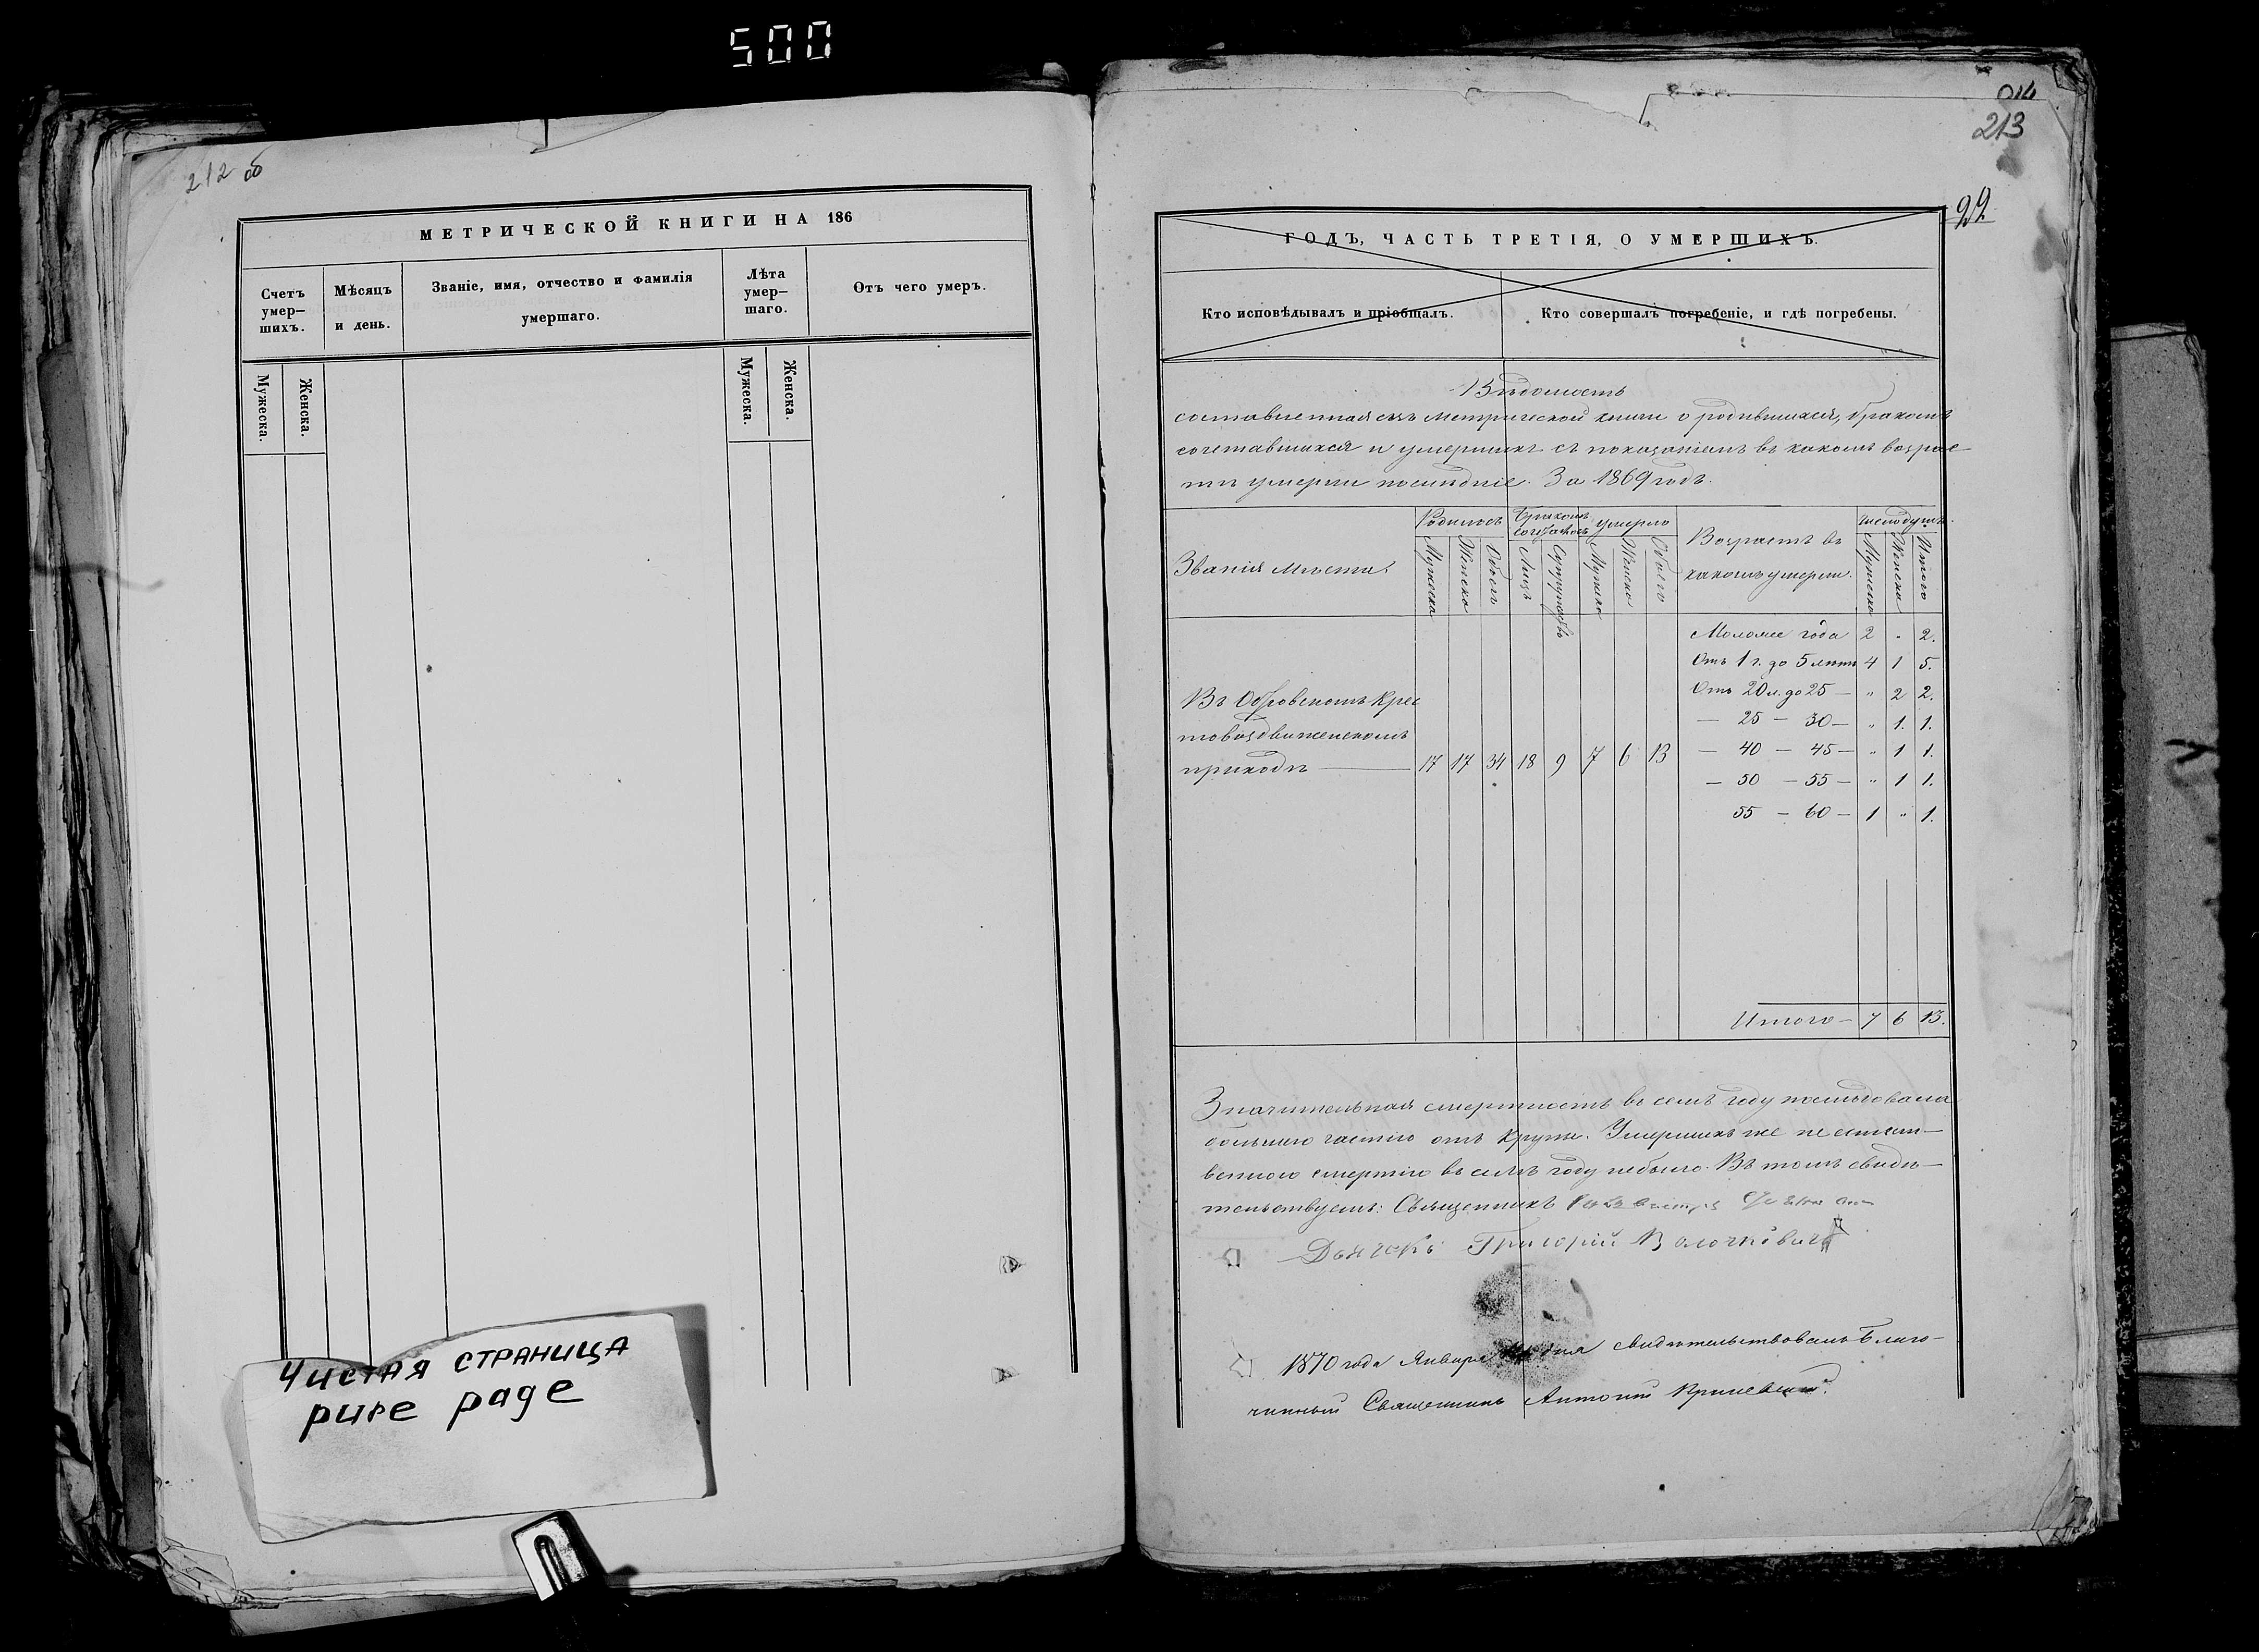 500
212 об
МЕТРИЧЕСКОЙ КНИГИ НА 186
Счетъ умер–шихъ.
Мѣсяцъ и день.
Званіе, имя, отчество и фамилія умершаго.
Лѣта умер–шаго.
Отъ чего умеръ.
Мужеска.
Женска.
Мужеска.
Женска.
Чистая страница
pure page
213
22
ГОДЪ, ЧАСТЬ ТРЕТІЯ, О УМЕРШИХЪ.
Кто исповѣдывалъ и пріобщалъ.
Кто совершалъ погребеніе, и гдѣ погребены.
Вѣдомость
составленная изъ метрической книги о родившихся, бракомъ
сочетавшихся и умершихъ съ показаніемъ въ какомъ возрас–
тѣ умерли послѣдніе. За 1869 годъ.
Званія мѣста.
Родилось
Бракомъ сочеталось
умерло
Возрастъ въ какомъ умерли.
число душъ
Мужеска
Женска
Обоего
Лицъ
Супружествъ
Мужеска
Женска
Обоего
Мужеска
Женска
Итого
Моложе года 2 " 2.
Отъ 1 г. до 5 лѣтъ 4 1 5.
Отъ 20 л. до 25 — " 2 2.
— 25 — 30 — " 1. 1.
— 40 — 45 — " 1 1.
— 50 — 55 — " 1 1.
55 — 60 — 1 " 1.
Въ Обровскомъ Крес
товоздвиженскомъ
приходѣ — 17 17 34 18 9 7 6 13
Итого — 7 6 13.
Значительная смертность въ семъ году послѣдовала
большею частію отъ крупа. Умершихъ же не естест–
венною смертію въ семъ году не было. Въ томъ свидѣ–
тельствуемъ: Священникъ
Дьячокъ Григорій
1870 года Января дня свидѣтельствовалъ Благо–
чинный Священникъ Антоній